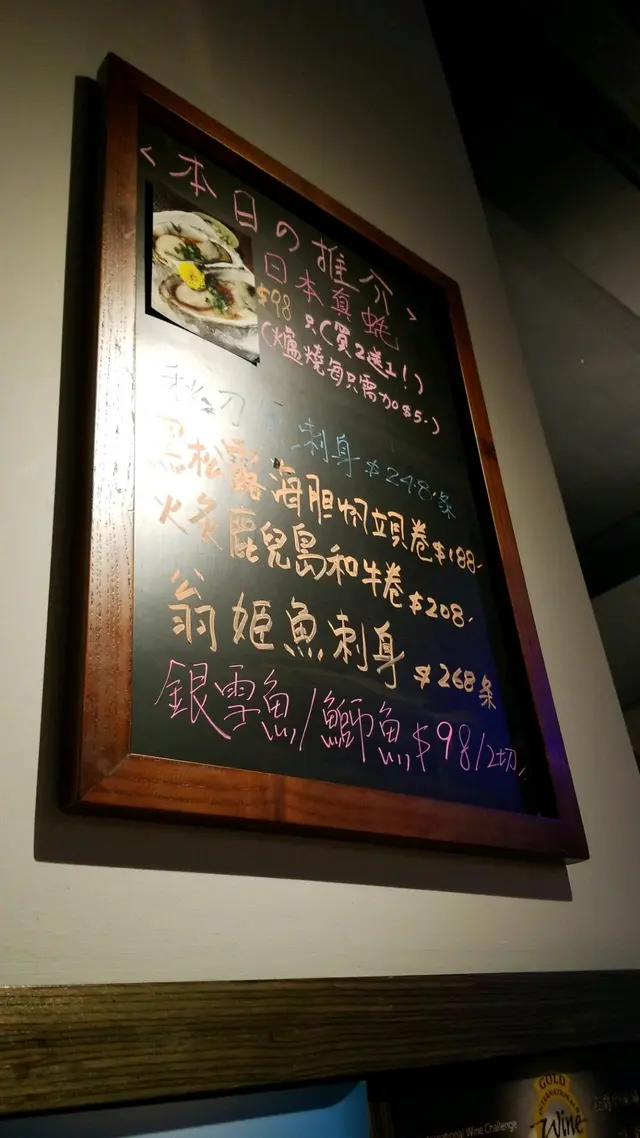 <本日の推介>
日本真蚝
$98 只(買2送1!)
(爐燒每只需加$5-)
秋刀魚刺身 $248/条
黑松露海胆帆立貝卷 $188-
火炙鹿兒島和牛卷 $208-
翁姫魚刺身 $268条
銀雪魚/鰤魚 $98/2切
GOLD
INTERNATIONAL
Wine
Wine Challenge